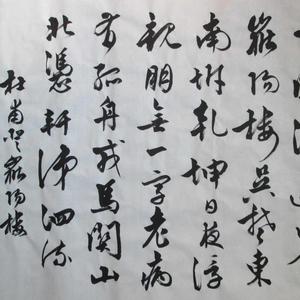 嶽陽樓吳楚東
南坼乾坤日夜浮
親朋無一字老病
有孤舟戎馬關山
北憑軒涕泗流
杜甫登嶽陽樓